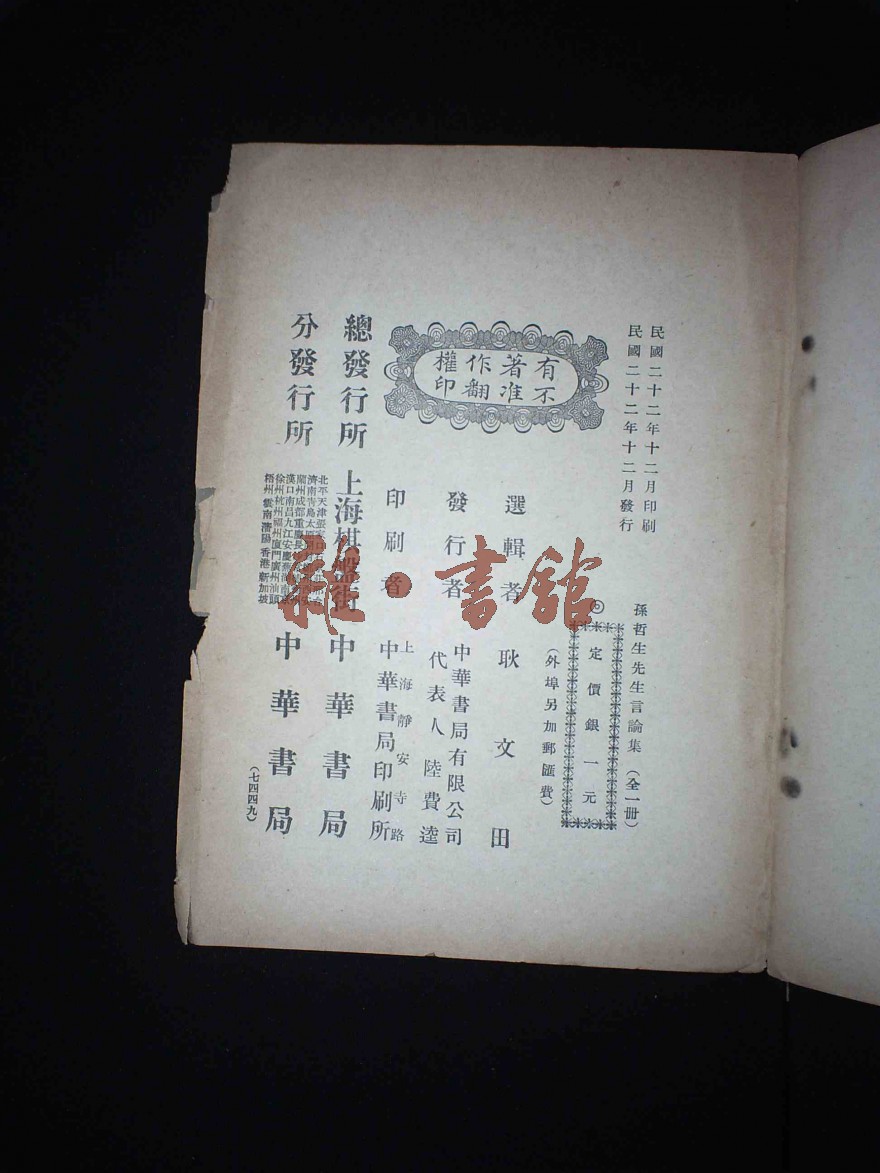 民國二十二年十二月印刷
民國二十二年十二月發行
孫哲生先生言論集（全一册）
◎定價銀一元
（外埠另加郵匯費）
選輯者 耿文田
發行者 中華書局有限公司
代表人 陸費逵
印刷者 上海靜安寺路
中華書局印刷所
有著作權
不准翻印
總發行所 上海棋盤街 中華書局
分發行所
北平天津張
濟南青島太
蘭州成都重慶長
漢口南昌九江安慶蕪湖南京
徐州杭州福州廈門廣州汕頭
梧州雲南瀋陽香港新加坡
中華書局
（七四四九）
雜·書館